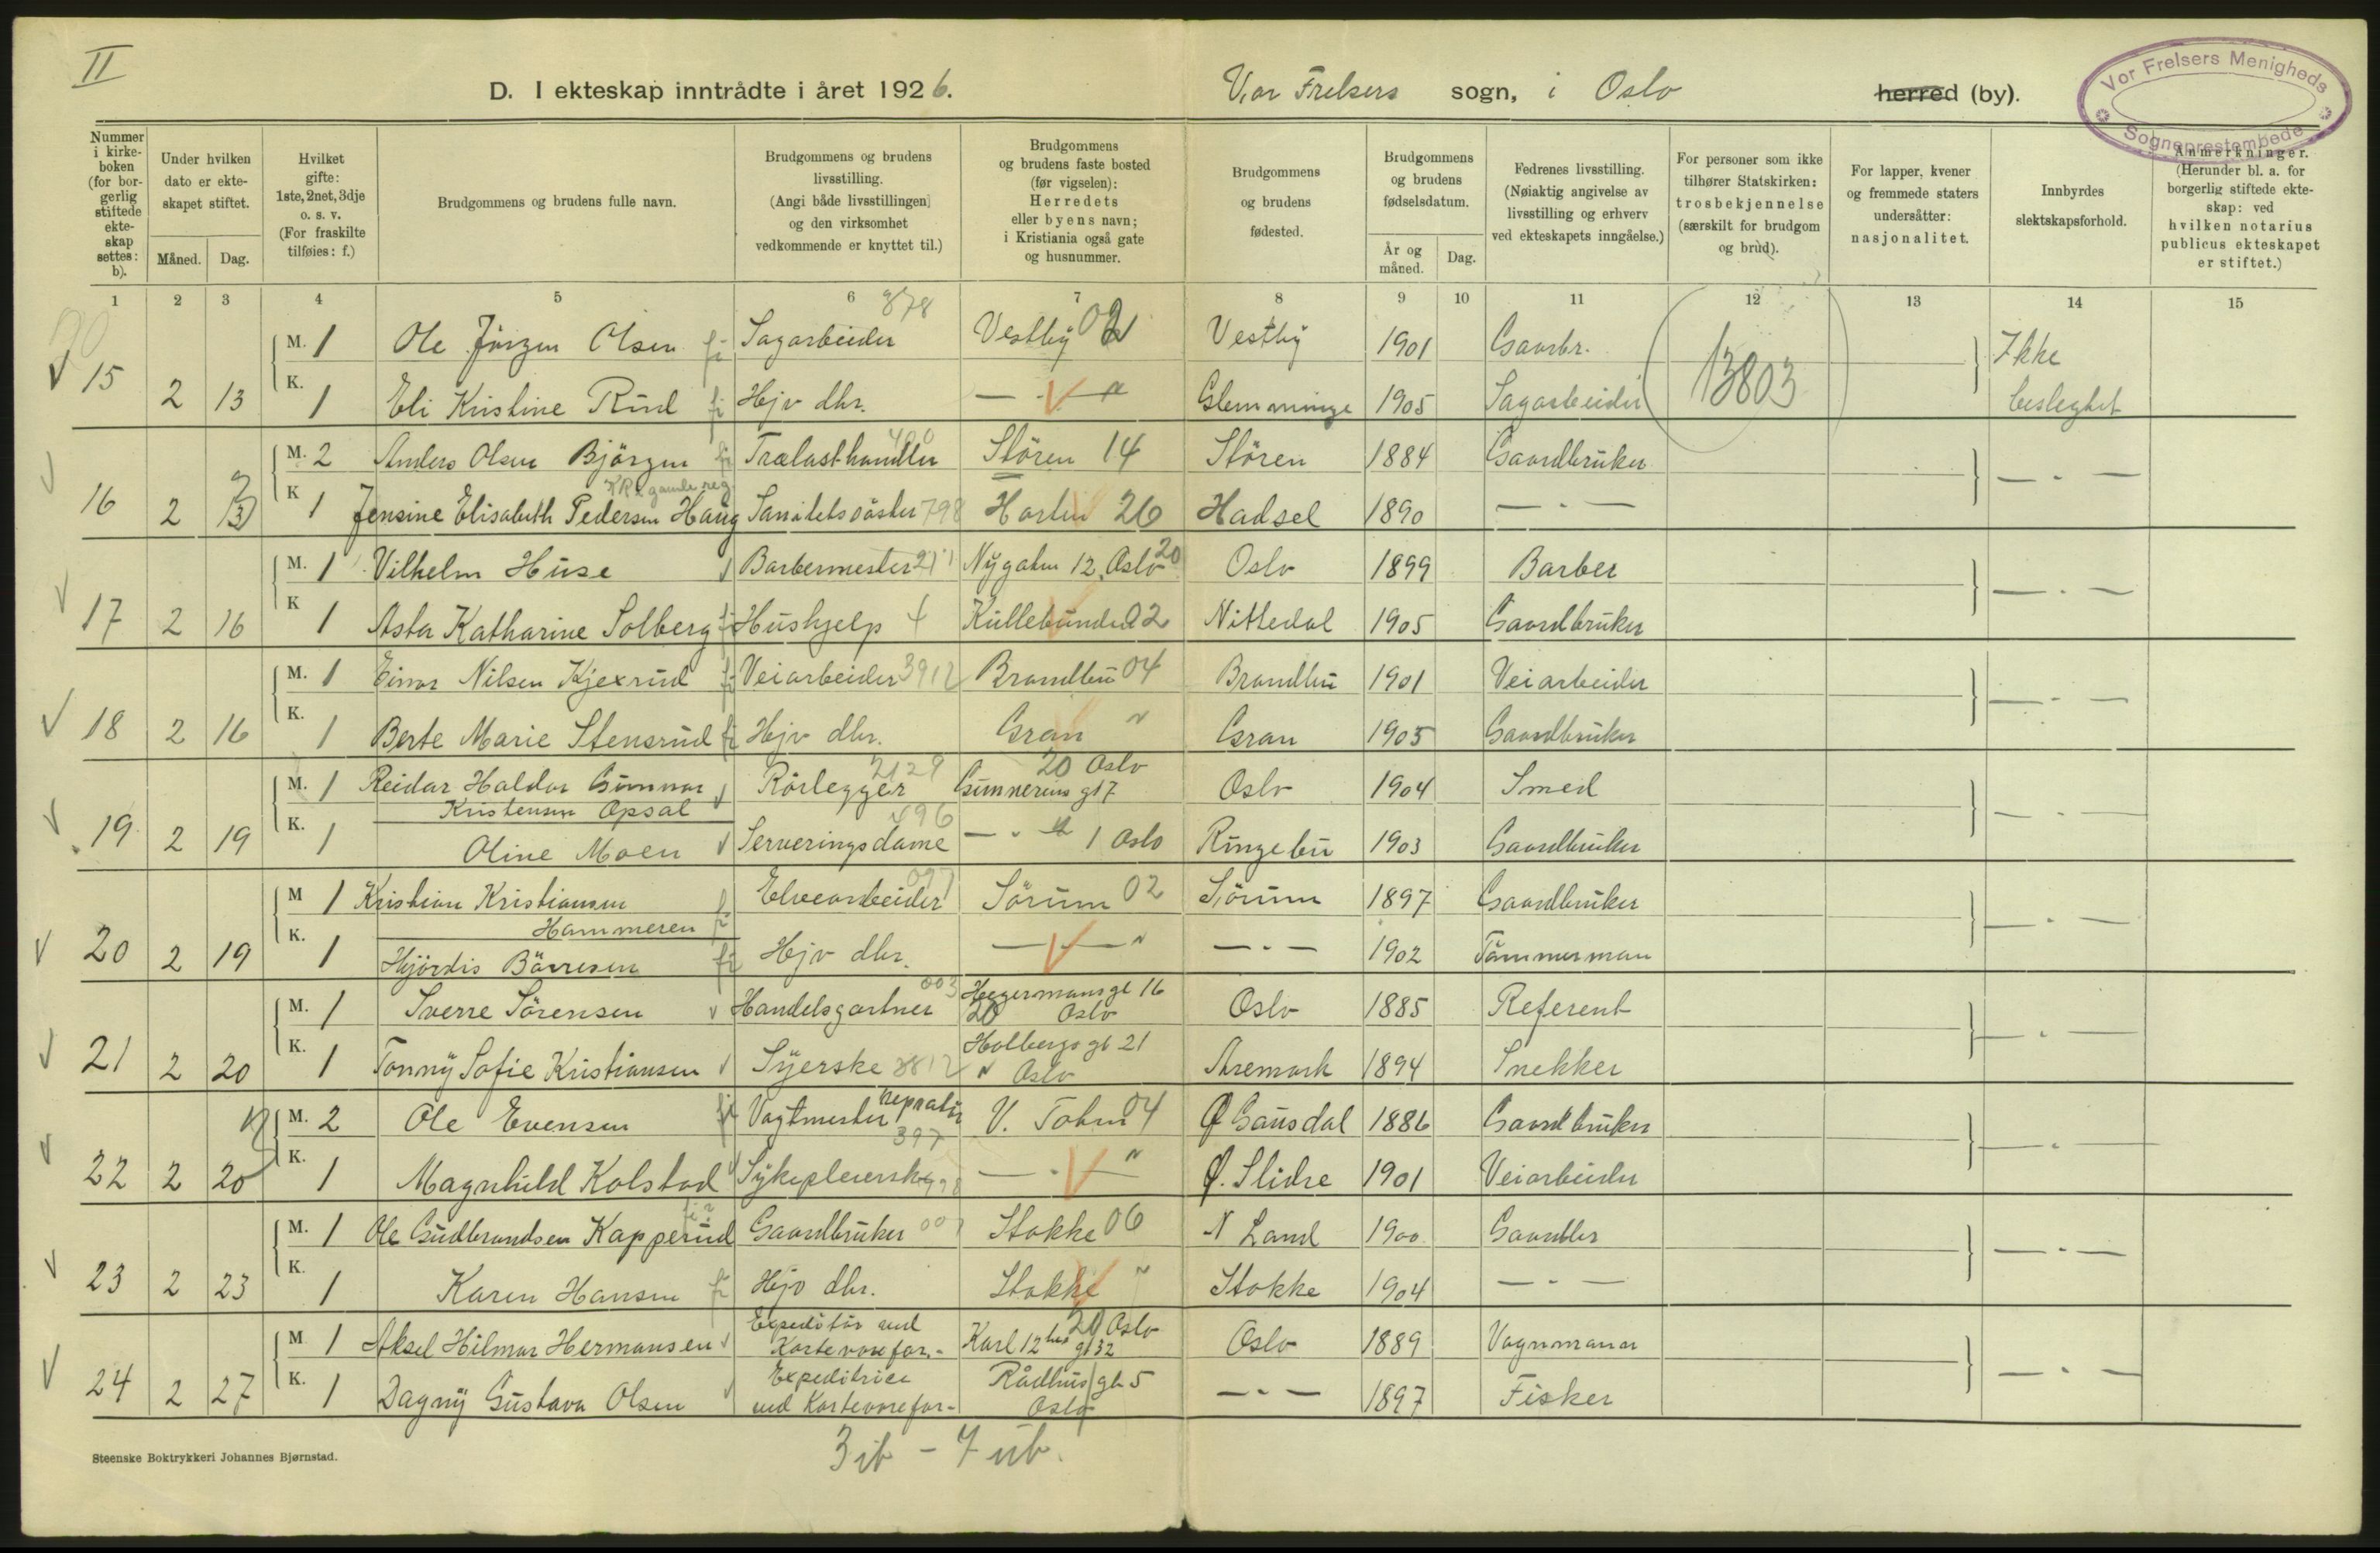 II
D. I ekteskap inntrådte i året 1926.
Vor Frelsers sogn, i Oslo herred (by).
Vor Frelsers Menigheds Sogneprestembede
Nummer i kirkeboken (for borgerlig stiftede ekteskap settes: b).
Under hvilken dato er ekteskapet stiftet.
Måned. Dag.
Hvilket gifte: 1ste, 2net, 3dje o. s. v. (For fraskilte tilføies: f.)
Brudgommens og brudens fulle navn.
Brudgommens og brudens livsstilling. (Angi både livsstillingen og den virksomhet vedkommende er knyttet til.)
Brudgommens og brudens faste bosted (før vigselen): Herredets eller byens navn; i Kristiania også gate og husnummer.
Brudgommens og brudens fødested.
Brudgommens og brudens fødselsdatum.
År og måned. Dag.
Fedrenes livsstilling. (Nøiaktig angivelse av livsstilling og erhverv ved ekteskapets inngåelse.)
For personer som ikke tilhører Statskirken: trosbekjennelse (særskilt for brudgom og brud).
For lapper, kvener og fremmede staters undersåtter: nasjonalitet.
Innbyrdes slektskapsforhold.
Anmerkninger. (Herunder bl. a. for borgerlig stiftede ekteskap: ved hvilken notarius publicus ekteskapet er stiftet.)
1 2 3 4 5 6 7 8 9 10 11 12 13 14 15
878
M. 1 Ole Jörgen Olsen Sagarbeider Vestby 02 Vestby 1901 Gaardbr. 13803 Ikke
15 2 13 K. 1 Eli Kristine Rud Hjv dhr. — " Glemminge 1905 Sagarbeider beslegtet
M. 2 Anders Olsen Björgen Trælasthandler Stören 14 Stören 1884 Gaardbruker — " —
16 2 13 K 1 Jensine Elisabeth Pedersen Haug Sanitetssöster 798 26 Hadsel 1890 — " —
M. 1 Vilhelm Huse Barbermester Nygaten 12, Oslo 20 Oslo 1899 Barber — " —
17 2 16 K 1 Asta Katharine Solberg Hushjelp 02 Nittedal 1905 Gaardbruker
M. 1 Einar Nilsen Kjexrud Veiarbeider 3912 Brandbu 04 Brandbu 1901 Veiarbeider — " —
18 2 16 K. 1 Berte Marie Stensrud Hjv dhr. Gran " Gran 1905 Gaardbruker
M. 1 Reidar Haldor Gunnar Kristensen Opsal Rörlegger 2129 Gunnerius gt 7 20 Oslo Oslo 1904 Smed — " —
19 2 19 K. 1 Oline Moen Serveringsdame 496 — " — 1 Oslo Ringebu 1903 Gaardbruker
M 1 Kristian Kristiansen Hammeren Elvearbeider Sörum 02 Sörum 1897 Gaardbruker — " —
20 2 19 K. 1 Hjördis Börresen Hjv dhr. — " — 1902 Tömmerman
M. 1 Sverre Sörensen Handelsgartner 003 Hegermansgt 16 20 Oslo Oslo 1885 Referent — " —
21 2 20 K. 1 Tonny Sofie Kristiansen Syerske 3812 Holbergs gt 21 " Oslo Aremark 1894 Snekker
M. 2 Ole Evensen Vagtmester 397 V. Toten 04 Ø Gausdal 1886 Gaardbruker — " —
22 2 20 K. 1 Magnhild Kolstad Sykepleierske — " Ø. Slidre 1901 Veiarbeider
M. 1 Ole Gudbrandsen Kapperud Gaardbruker 001 Stokke 06 N Land 1900 Gaardbr — " —
23 2 23 K. 1 Karen Hansen Hjv dhr. Stokke " Stokke 1904 — " —
M 1 Aksel Hilmar Hermansen Expeditör ved Kortevarefor.- Karl 12tes gt 32 20 Oslo Oslo 1889 Vognmann — " —
24 2 27 K. 1 Dagny Gustava Olsen Expeditrice ved Kortevarefor- Rådhus gt 5 Oslo — " — 1897 Fisker
Steenske Boktrykkeri Johannes Bjørnstad.
3 ib - 7 ub.